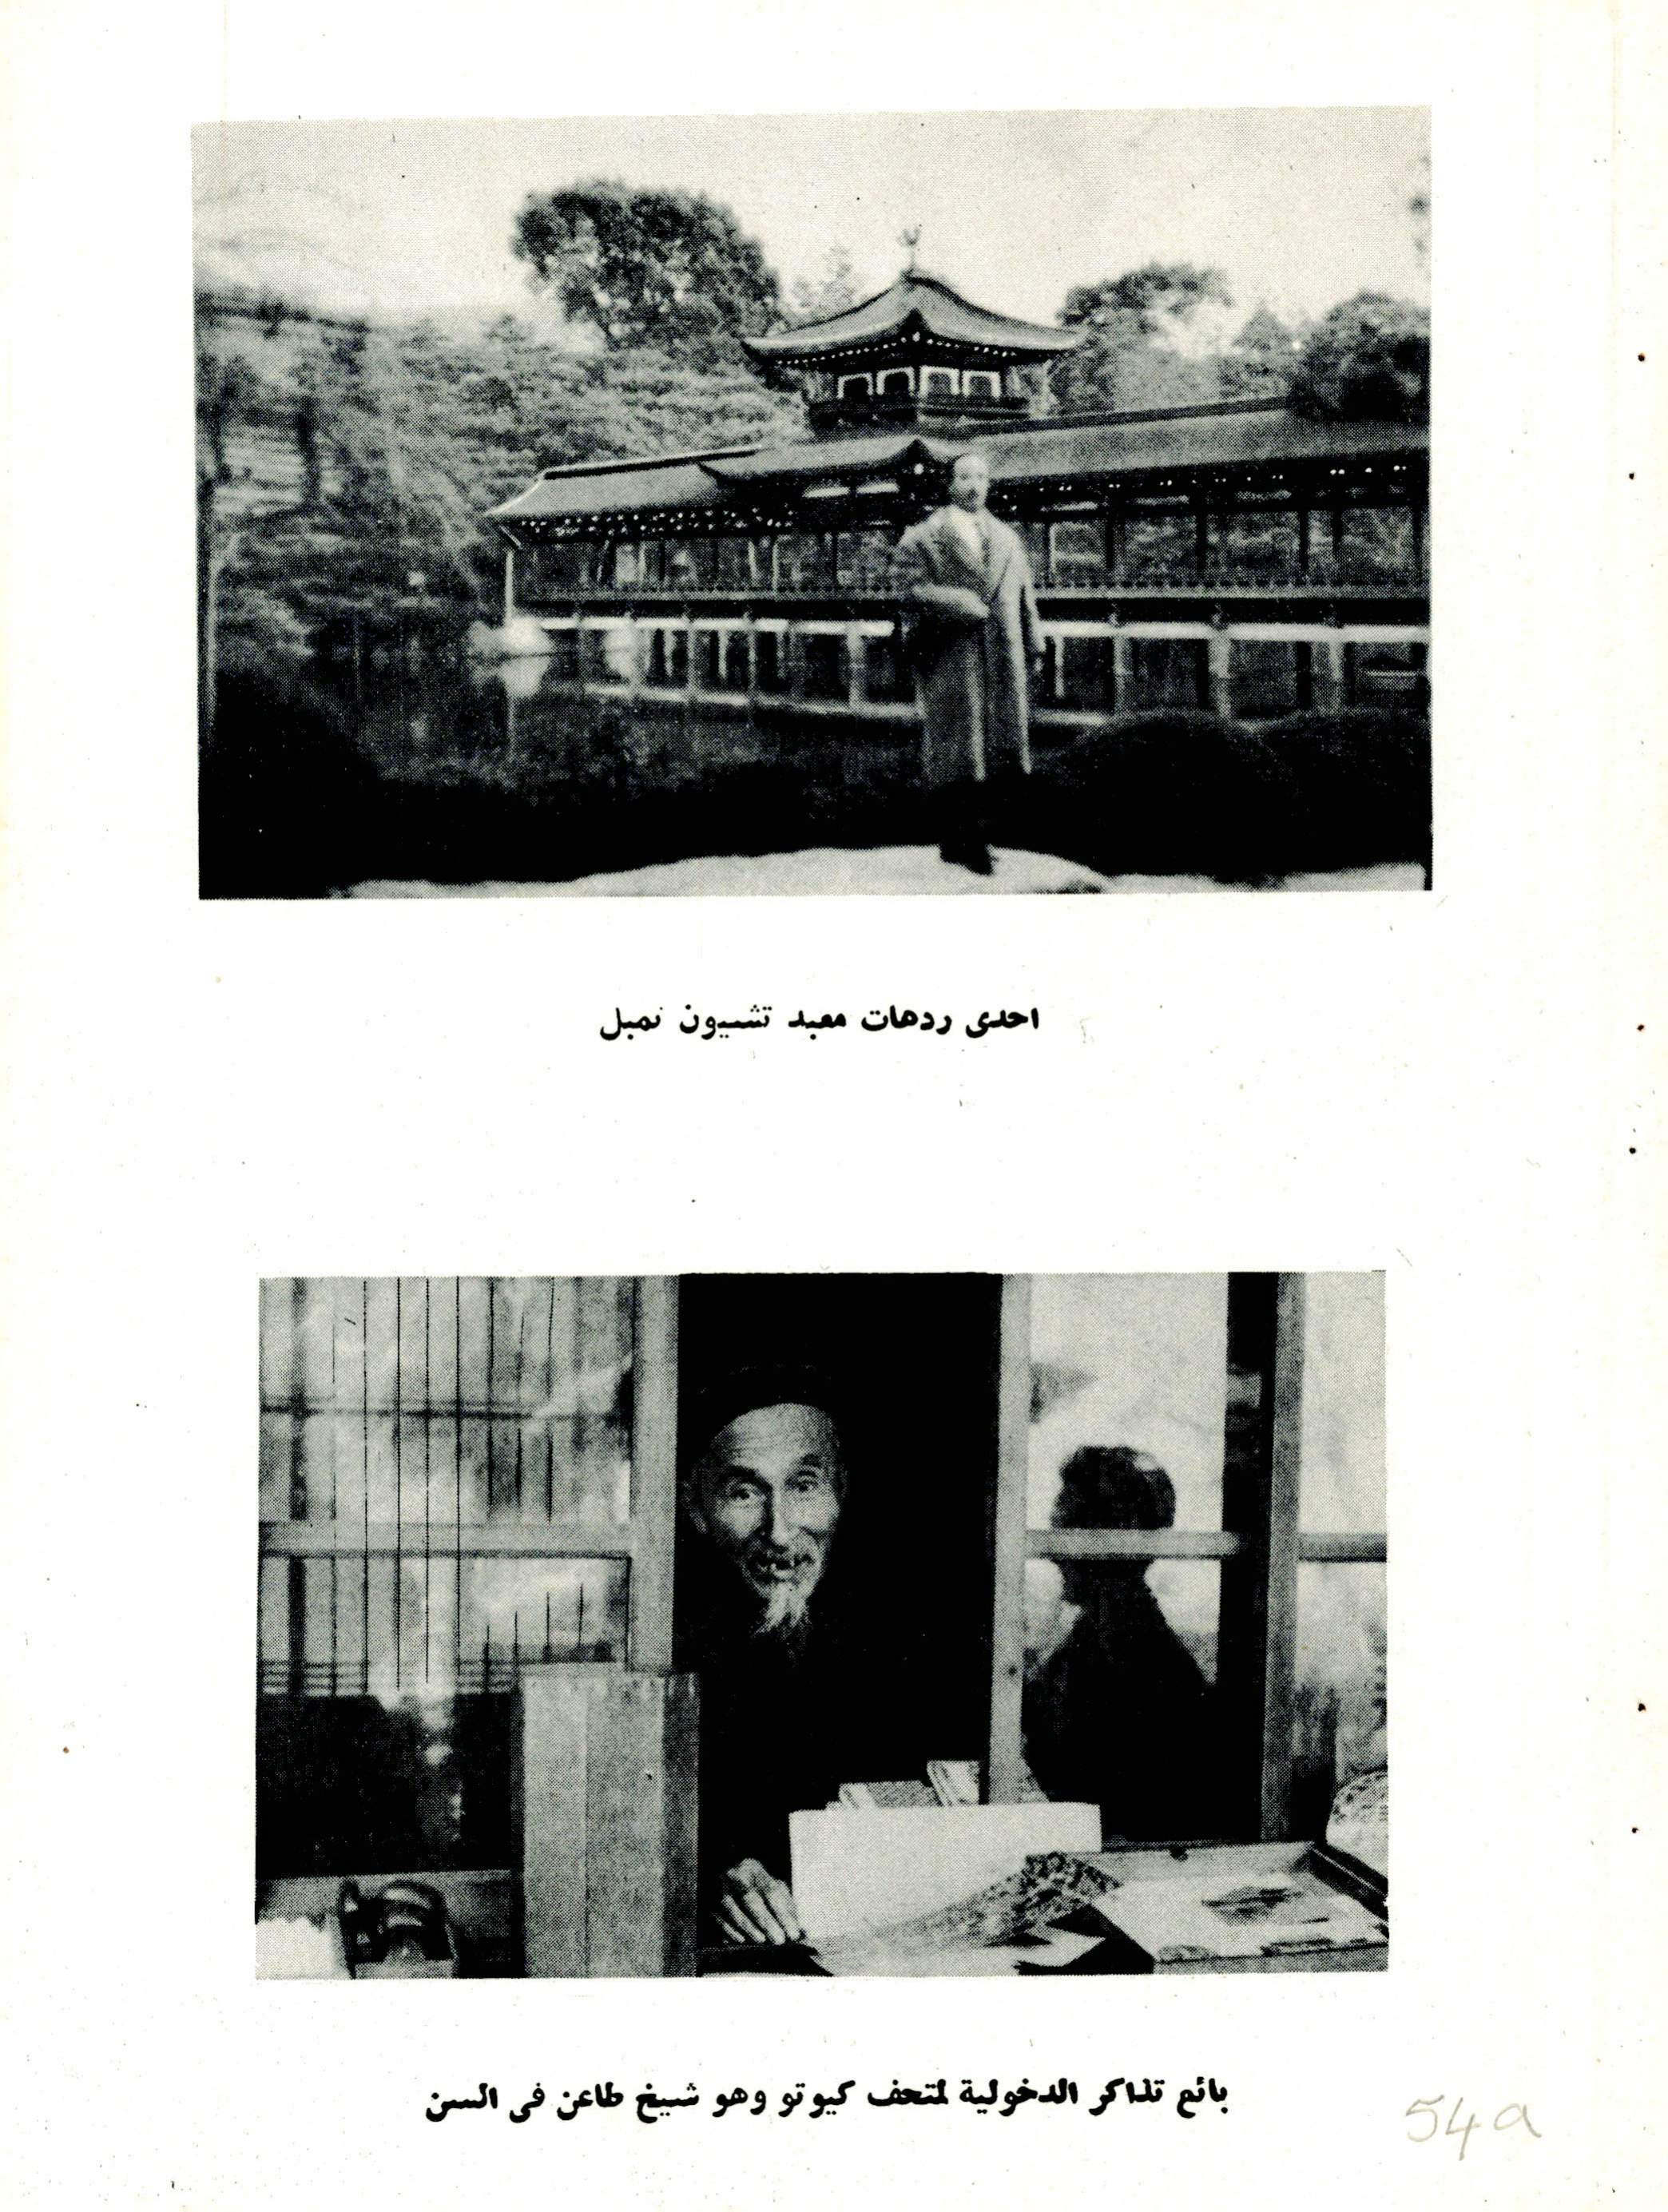 احدى ردهات معبد تشيون تمبل
بائع تذاكر الدخولية لمتحف كيوتو وهو شيخ طاعن فى السن
54a